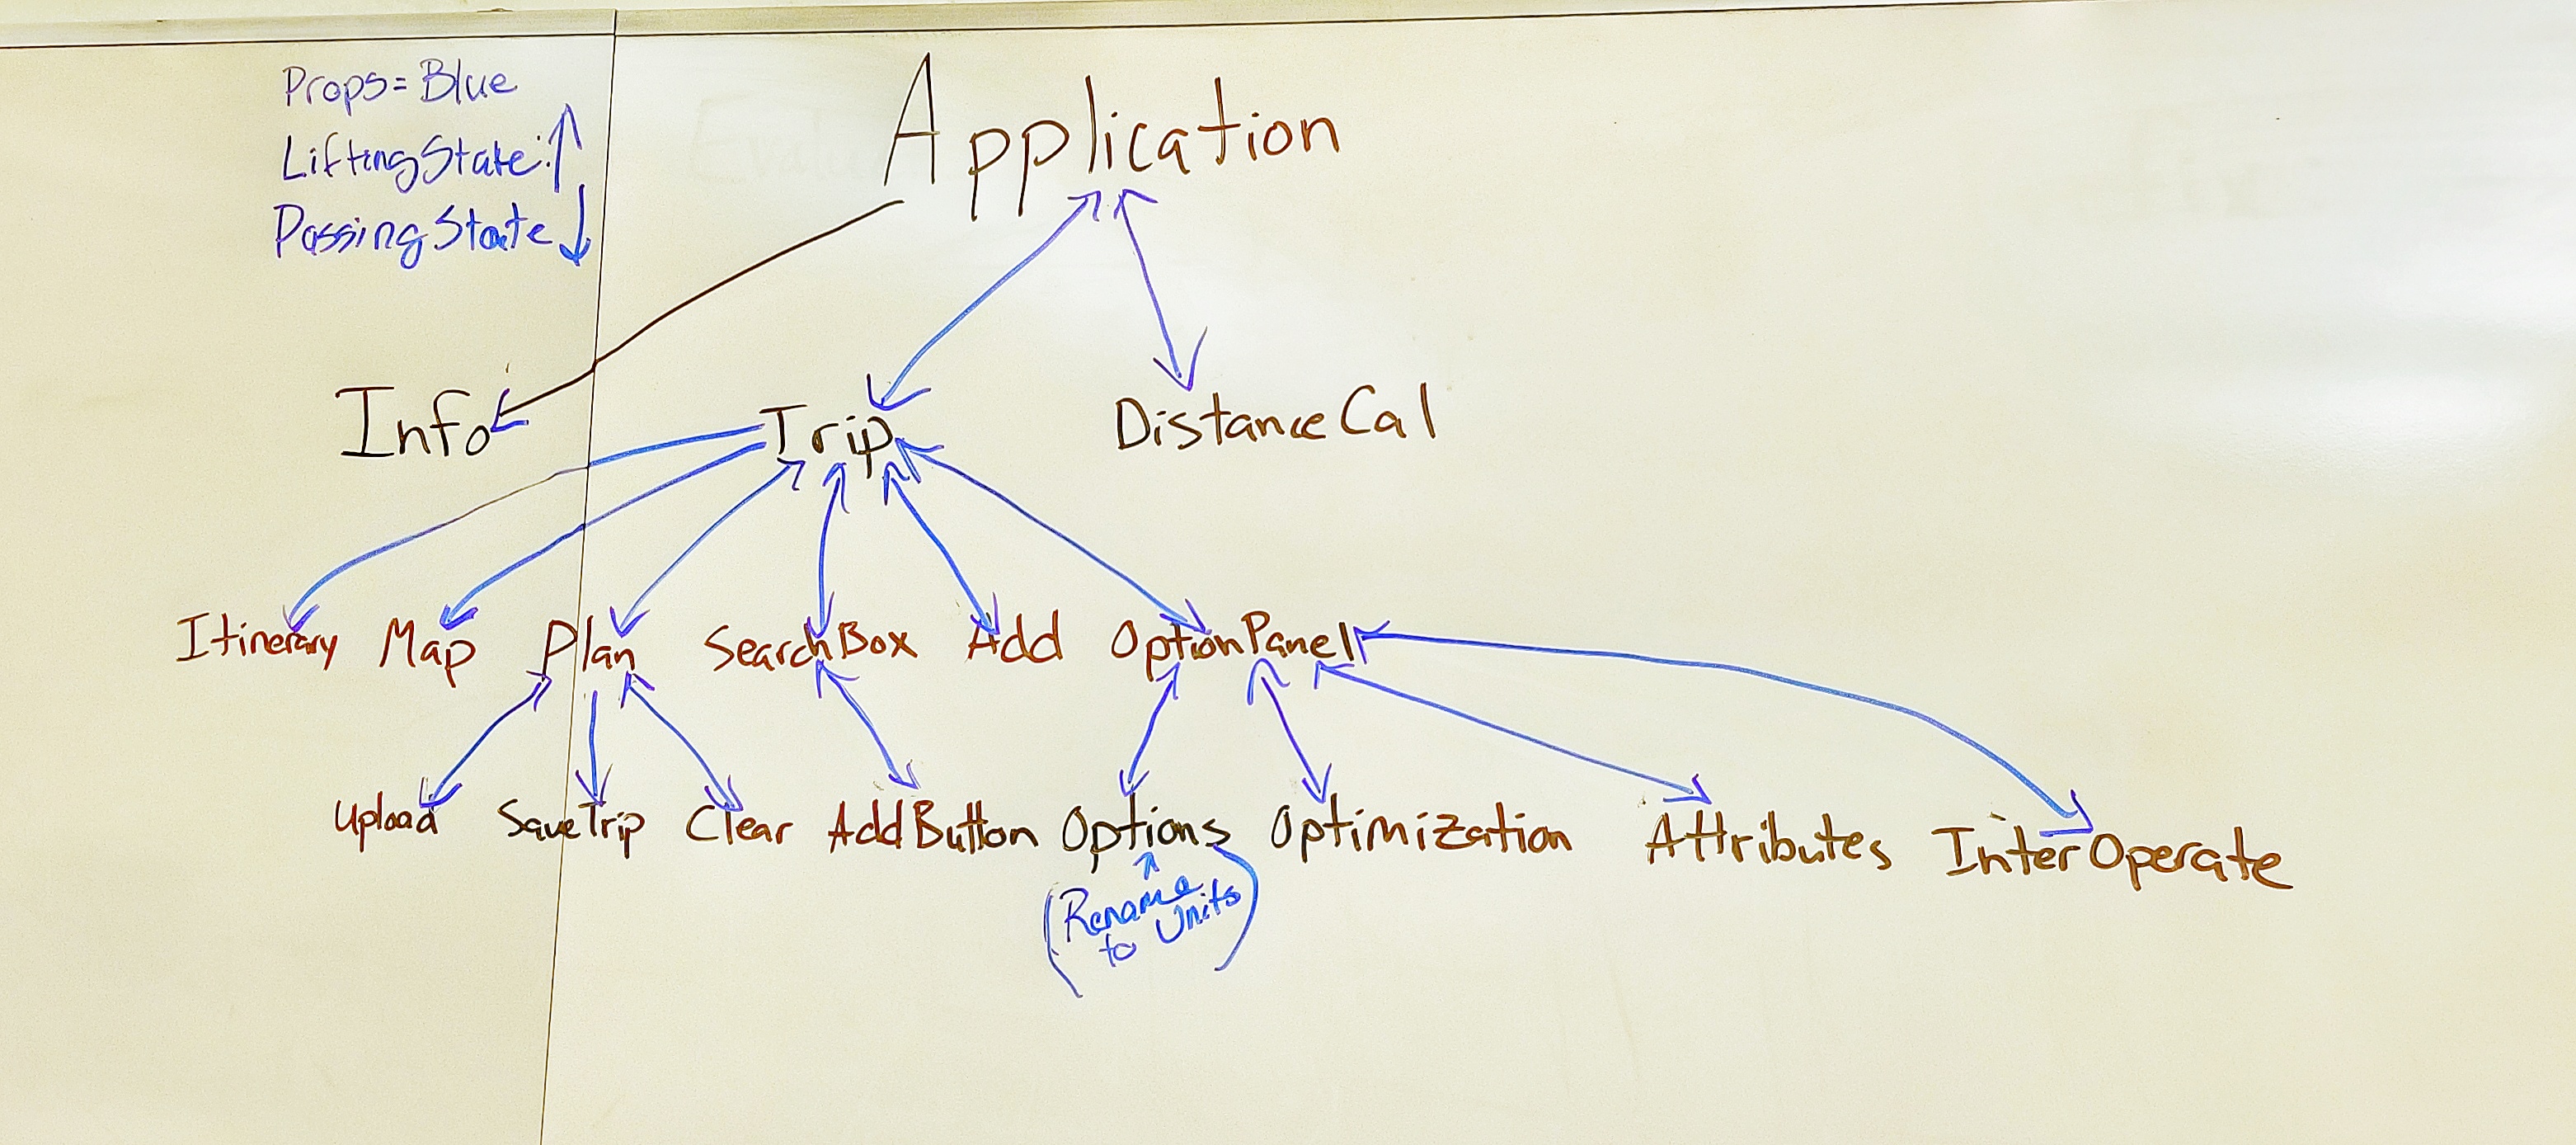 Props=Blue
LiftingState:↑
PassingState↓
Application
Info
Trip
DistanceCal
Itinerary Map Plan SearchBox Add OptionPanel
Upload SaveTrip Clear AddButton Options Optimization Attributes InterOperate
(Rename
to Units)